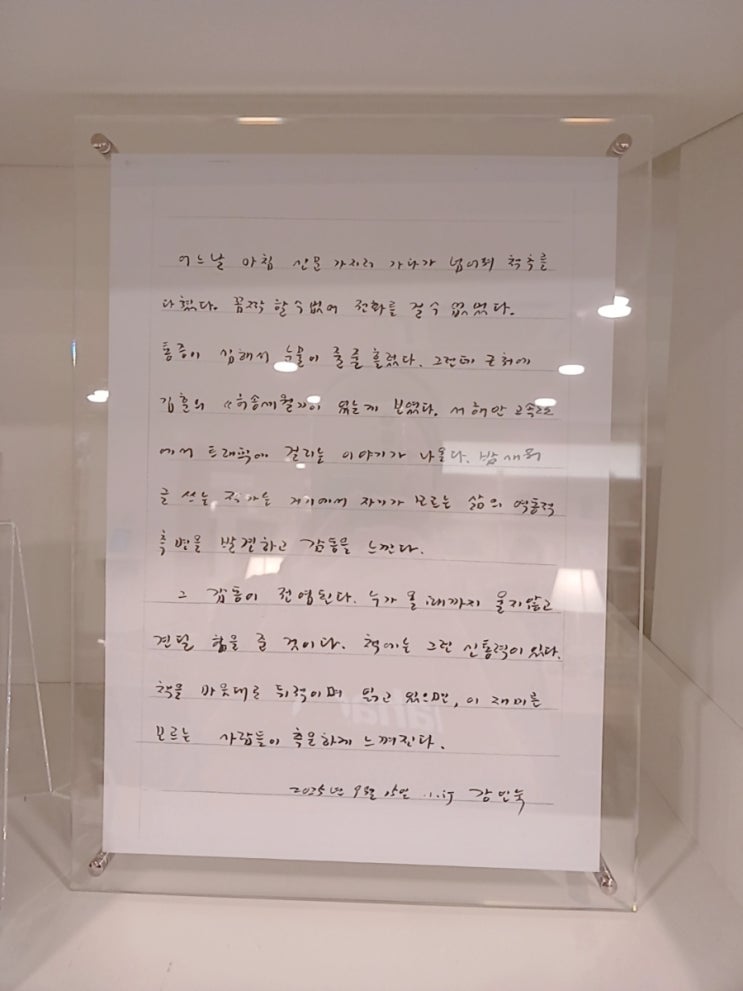 어느날 아침 신문 가지러 가다가 넘어져 척추를
다쳤다. 꼼짝 할 수 없어 전화를 걸 수 없었다.
통증이 심해서 눈물이 줄줄 흘렀다. 그런데 근처에
김훈의 《허송세월》이 있는게 보였다. 서해안 고속도로
에서 트래픽에 걸리는 이야기가 나온다. 밤새워
글 쓰는 작가는 거기에서 자기가 모르는 삶의 역동적
측면을 발견하고 감동을 느낀다.
그 감동이 전염된다. 누가 올 때까지 울지않고
견딜 힘을 준 것이다. 책에는 그런 신통력이 있다.
책을 마음대로 뒤적이며 읽고 있으면, 이 재미를
모르는 사람들이 측은하게 느껴진다.
2025년 9월 15일 강인숙